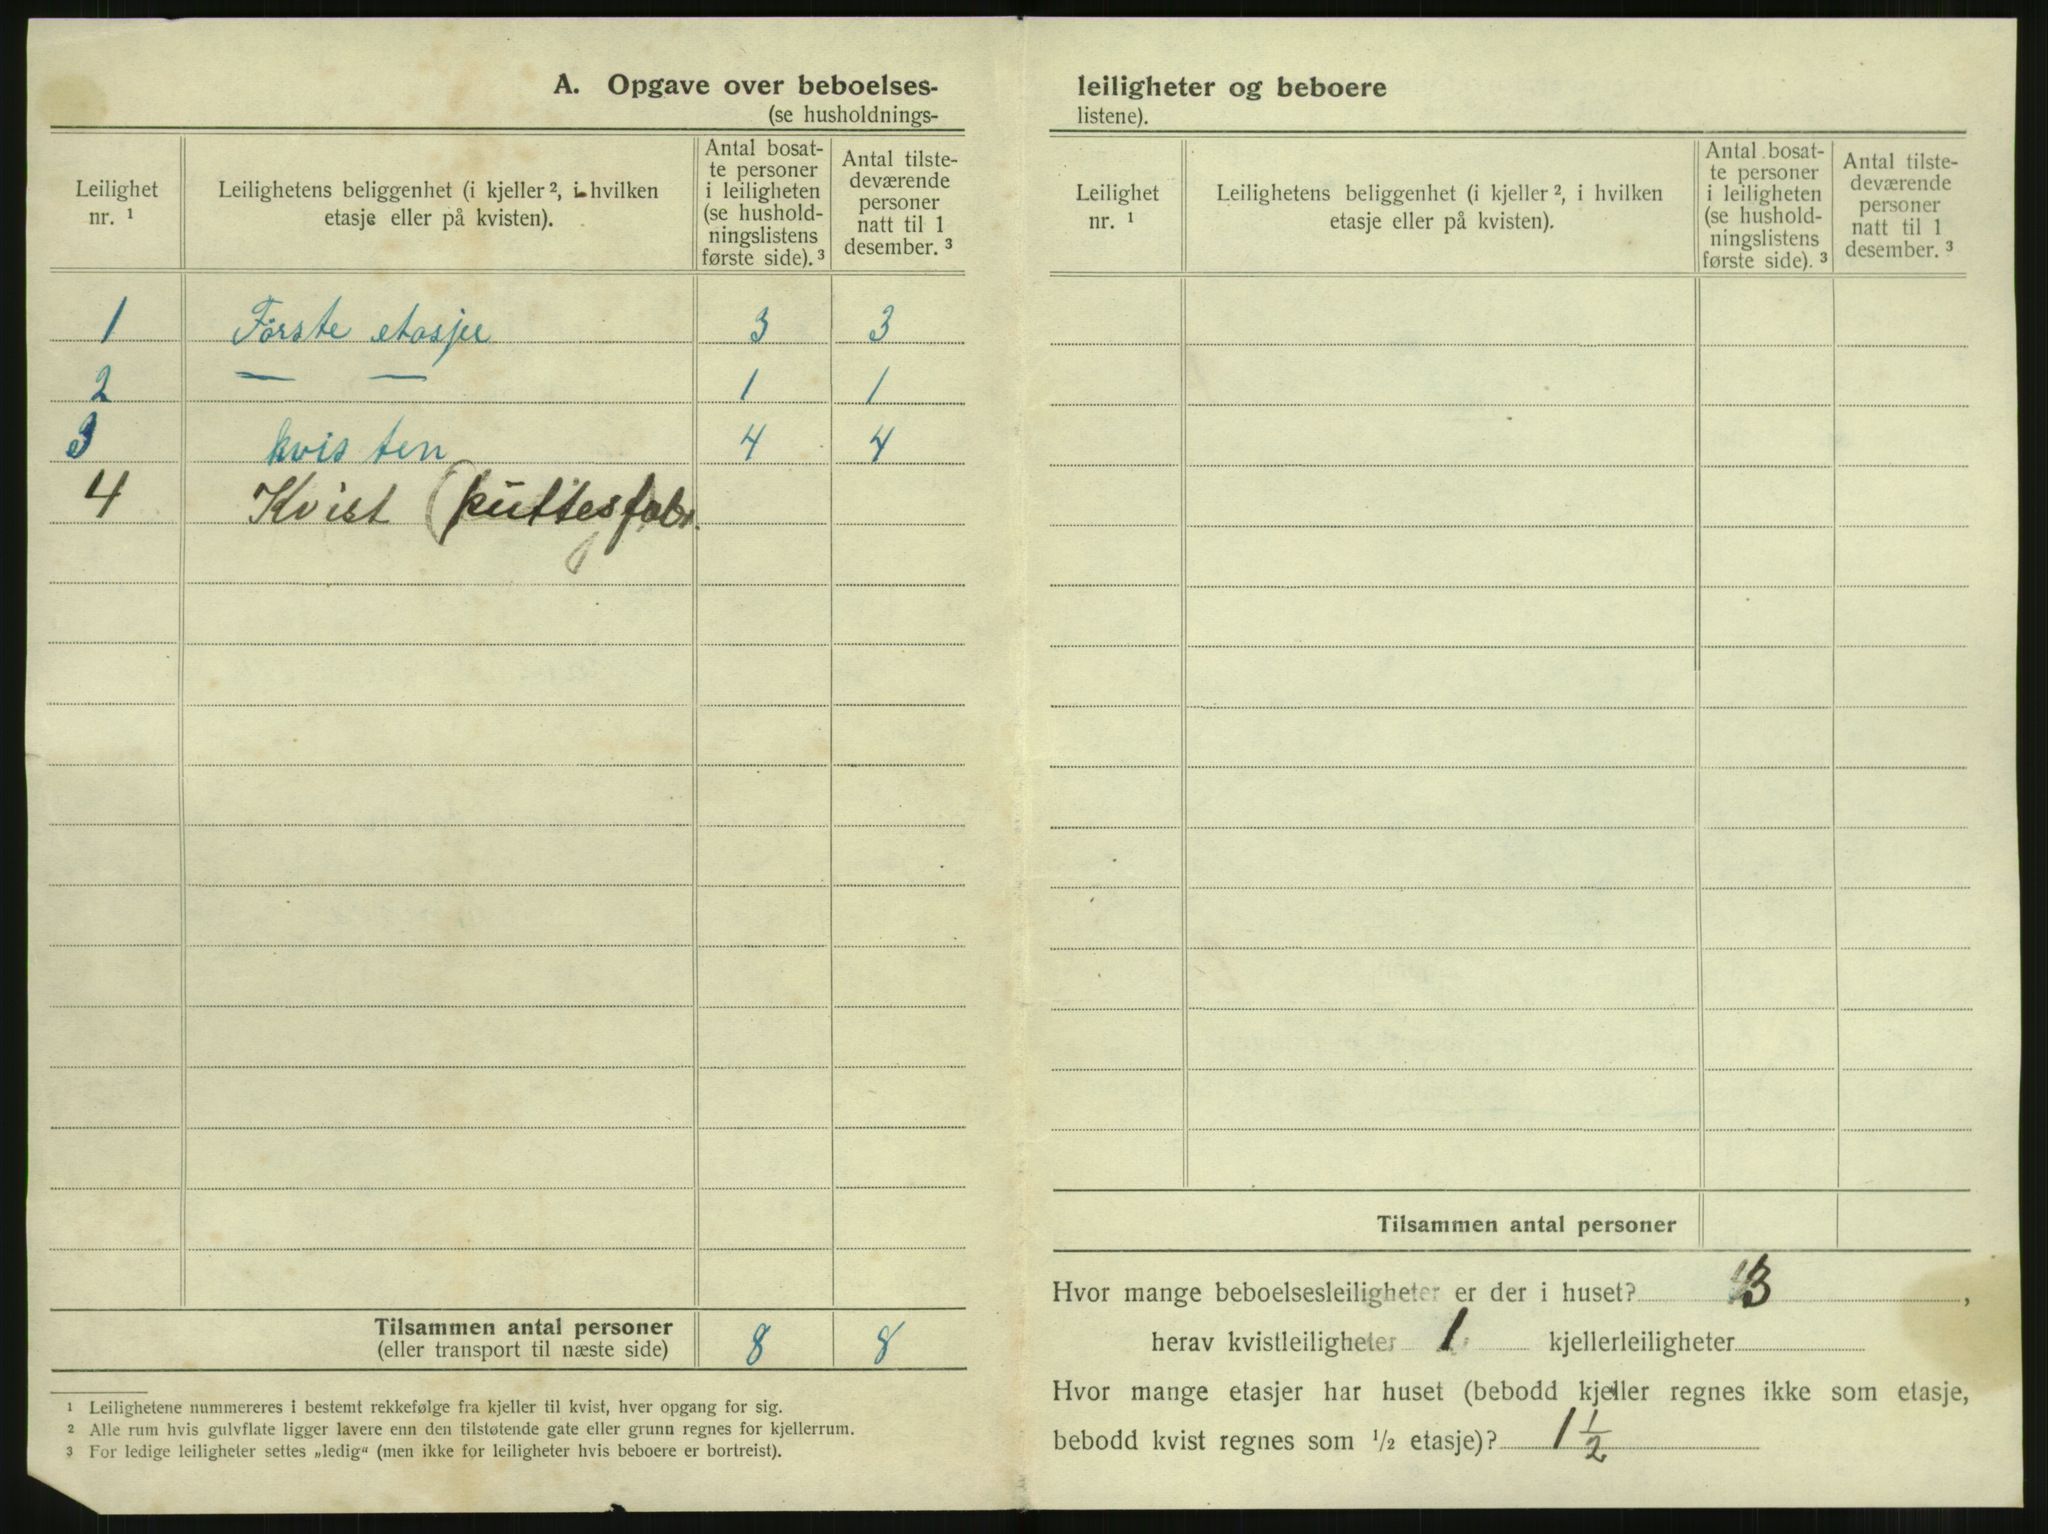 A. Opgave over beboelses-
(se husholdnings-
Leilighet nr. ¹
Leilighetens beliggenhet (i kjeller ², i hvilken etasje eller på kvisten).
Antal bosat-
te personer
i leiligheten
(se hushold-
ningslistens
første side). ³
Antal tilste-
deværende
personer
natt til 1
desember. ³
1 Første etasje 3 3
2 — — 1 1
3 kvisten 4 4
4 Kvist (puttesfabr.
Tilsammen antal personer 8 8
(eller transport til næste side)
¹ Leilighetene nummereres i bestemt rekkefølge fra kjeller til kvist, hver opgang for sig.
² Alle rum hvis gulvflate ligger lavere enn den tilstøtende gate eller grunn regnes for kjellerrum.
³ For ledige leiligheter settes „ledig“ (men ikke for leiligheter hvis beboere er bortreist).
leiligheter og beboere
listene).
Leilighet nr. ¹
Leilighetens beliggenhet (i kjeller ², i hvilken etasje eller på kvisten).
Antal bosat-
te personer
i leiligheten
(se hushold-
ningslistens
første side). ³
Antal tilste-
deværende
personer
natt til 1
desember. ³
Tilsammen antal personer
Hvor mange beboelsesleiligheter er der i huset? 3,
herav kvistleiligheter 1 kjellerleiligheter
Hvor mange etasjer har huset (bebodd kjeller regnes ikke som etasje,
bebodd kvist regnes som ½ etasje)? 1 ½